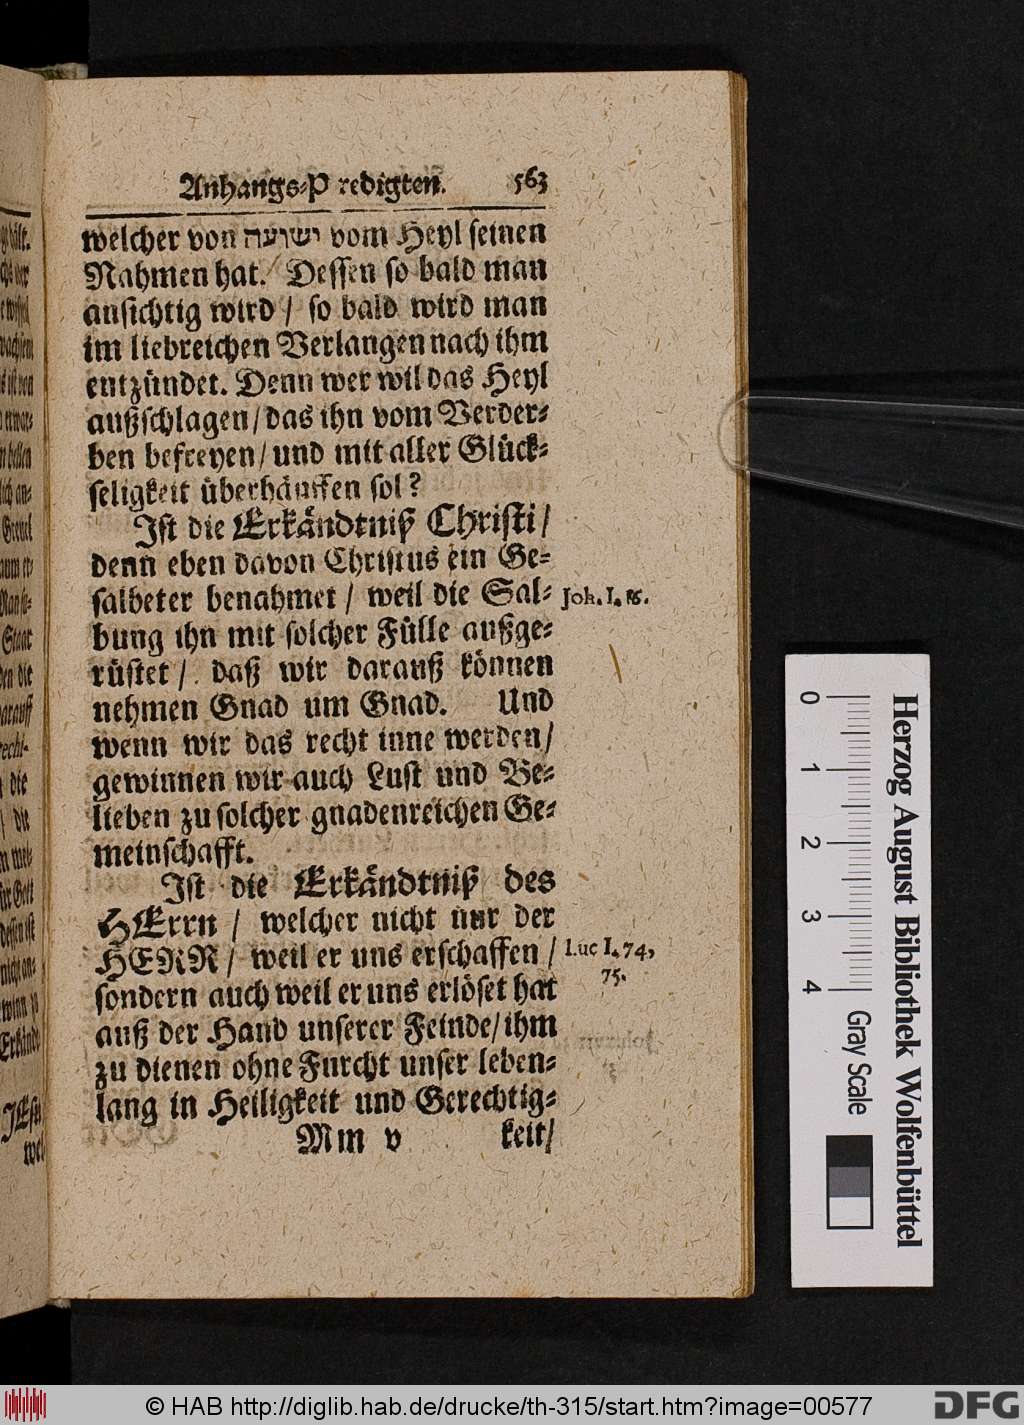 Anhangs-Predigten. 563
welcher von ישועה vom Heyl seinen
Nahmen hat. Dessen so bald man
ansichtig wird / so bald wird man
im liebreichen Verlangen nach ihm
entzündet. Denn wer wil das Heyl
außschlagen / das ihn vom Verder-
ben befreyen / und mit aller Glück-
seligkeit überhäuffen sol?
Ist die Erkändtniß Christi /
denn eben davon Christus ein Ge-
salbeter benahmet / weil die Sal-
Joh. I. 16.
bung ihn mit solcher Fülle außge-
rüstet / daß wir darauß können
nehmen Gnad um Gnad. Und
wenn wir das recht inne werden /
gewinnen wir auch Lust und Be-
lieben zu solcher gnadenreichen Ge-
meinschafft.
Ist die Erkändtniß des
HErrn / welcher nicht nur der
HERR / weil er uns erschaffen /
Luc I. 74,
75.
sondern auch weil er uns erlöset hat
auß der Hand unserer Feinde / ihm
zu dienen ohne Furcht unser leben-
lang in Heiligkeit und Gerechtig-
Mm v keit /
0 1 2 3 4
Gray Scale
Herzog August Bibliothek Wolfenbüttel
© HAB http://diglib.hab.de/drucke/th-315/start.htm?image=00577
DFG